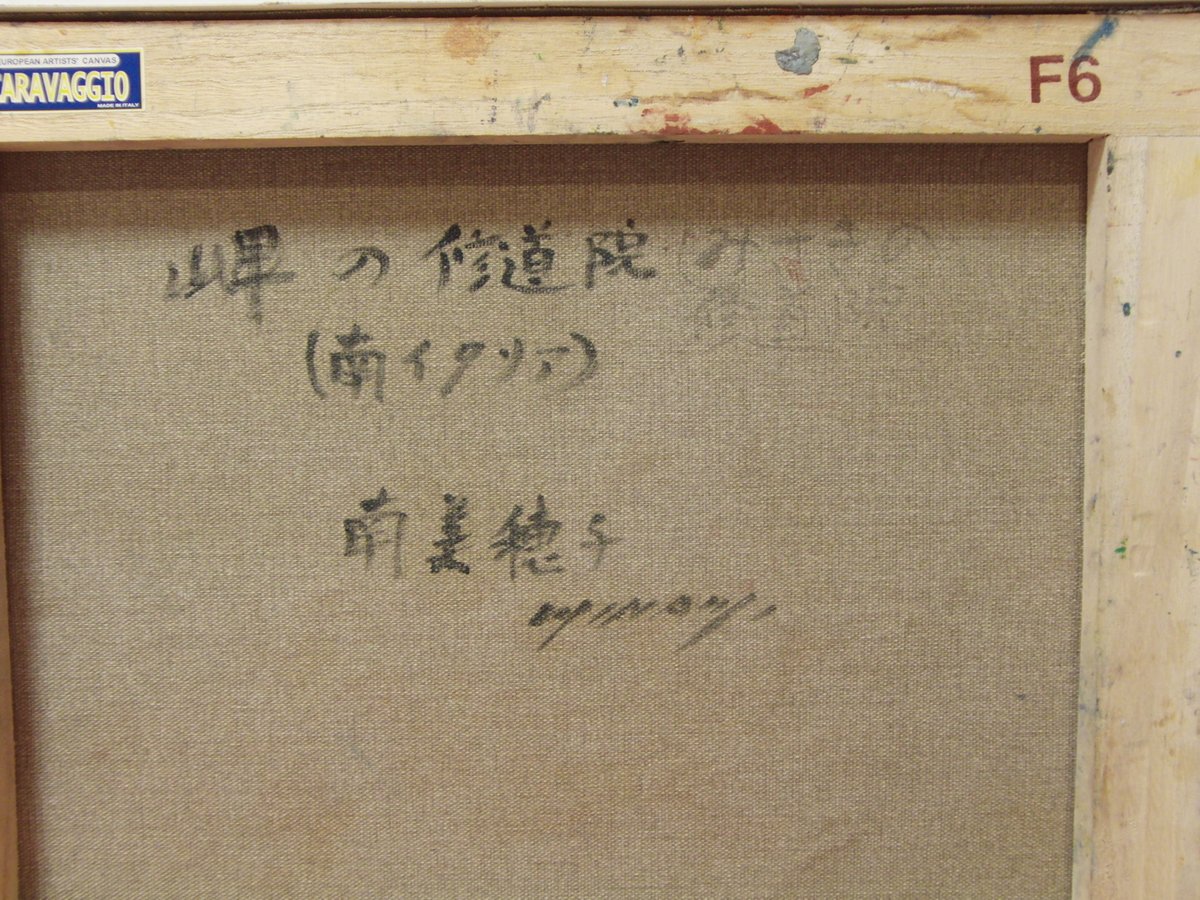 EUROPEAN ARTISTS' CANVAS
CARAVAGGIO
MADE IN ITALY
F6
岬の修道院
(みさきの
修道院
(南イタリア)
南美穂子